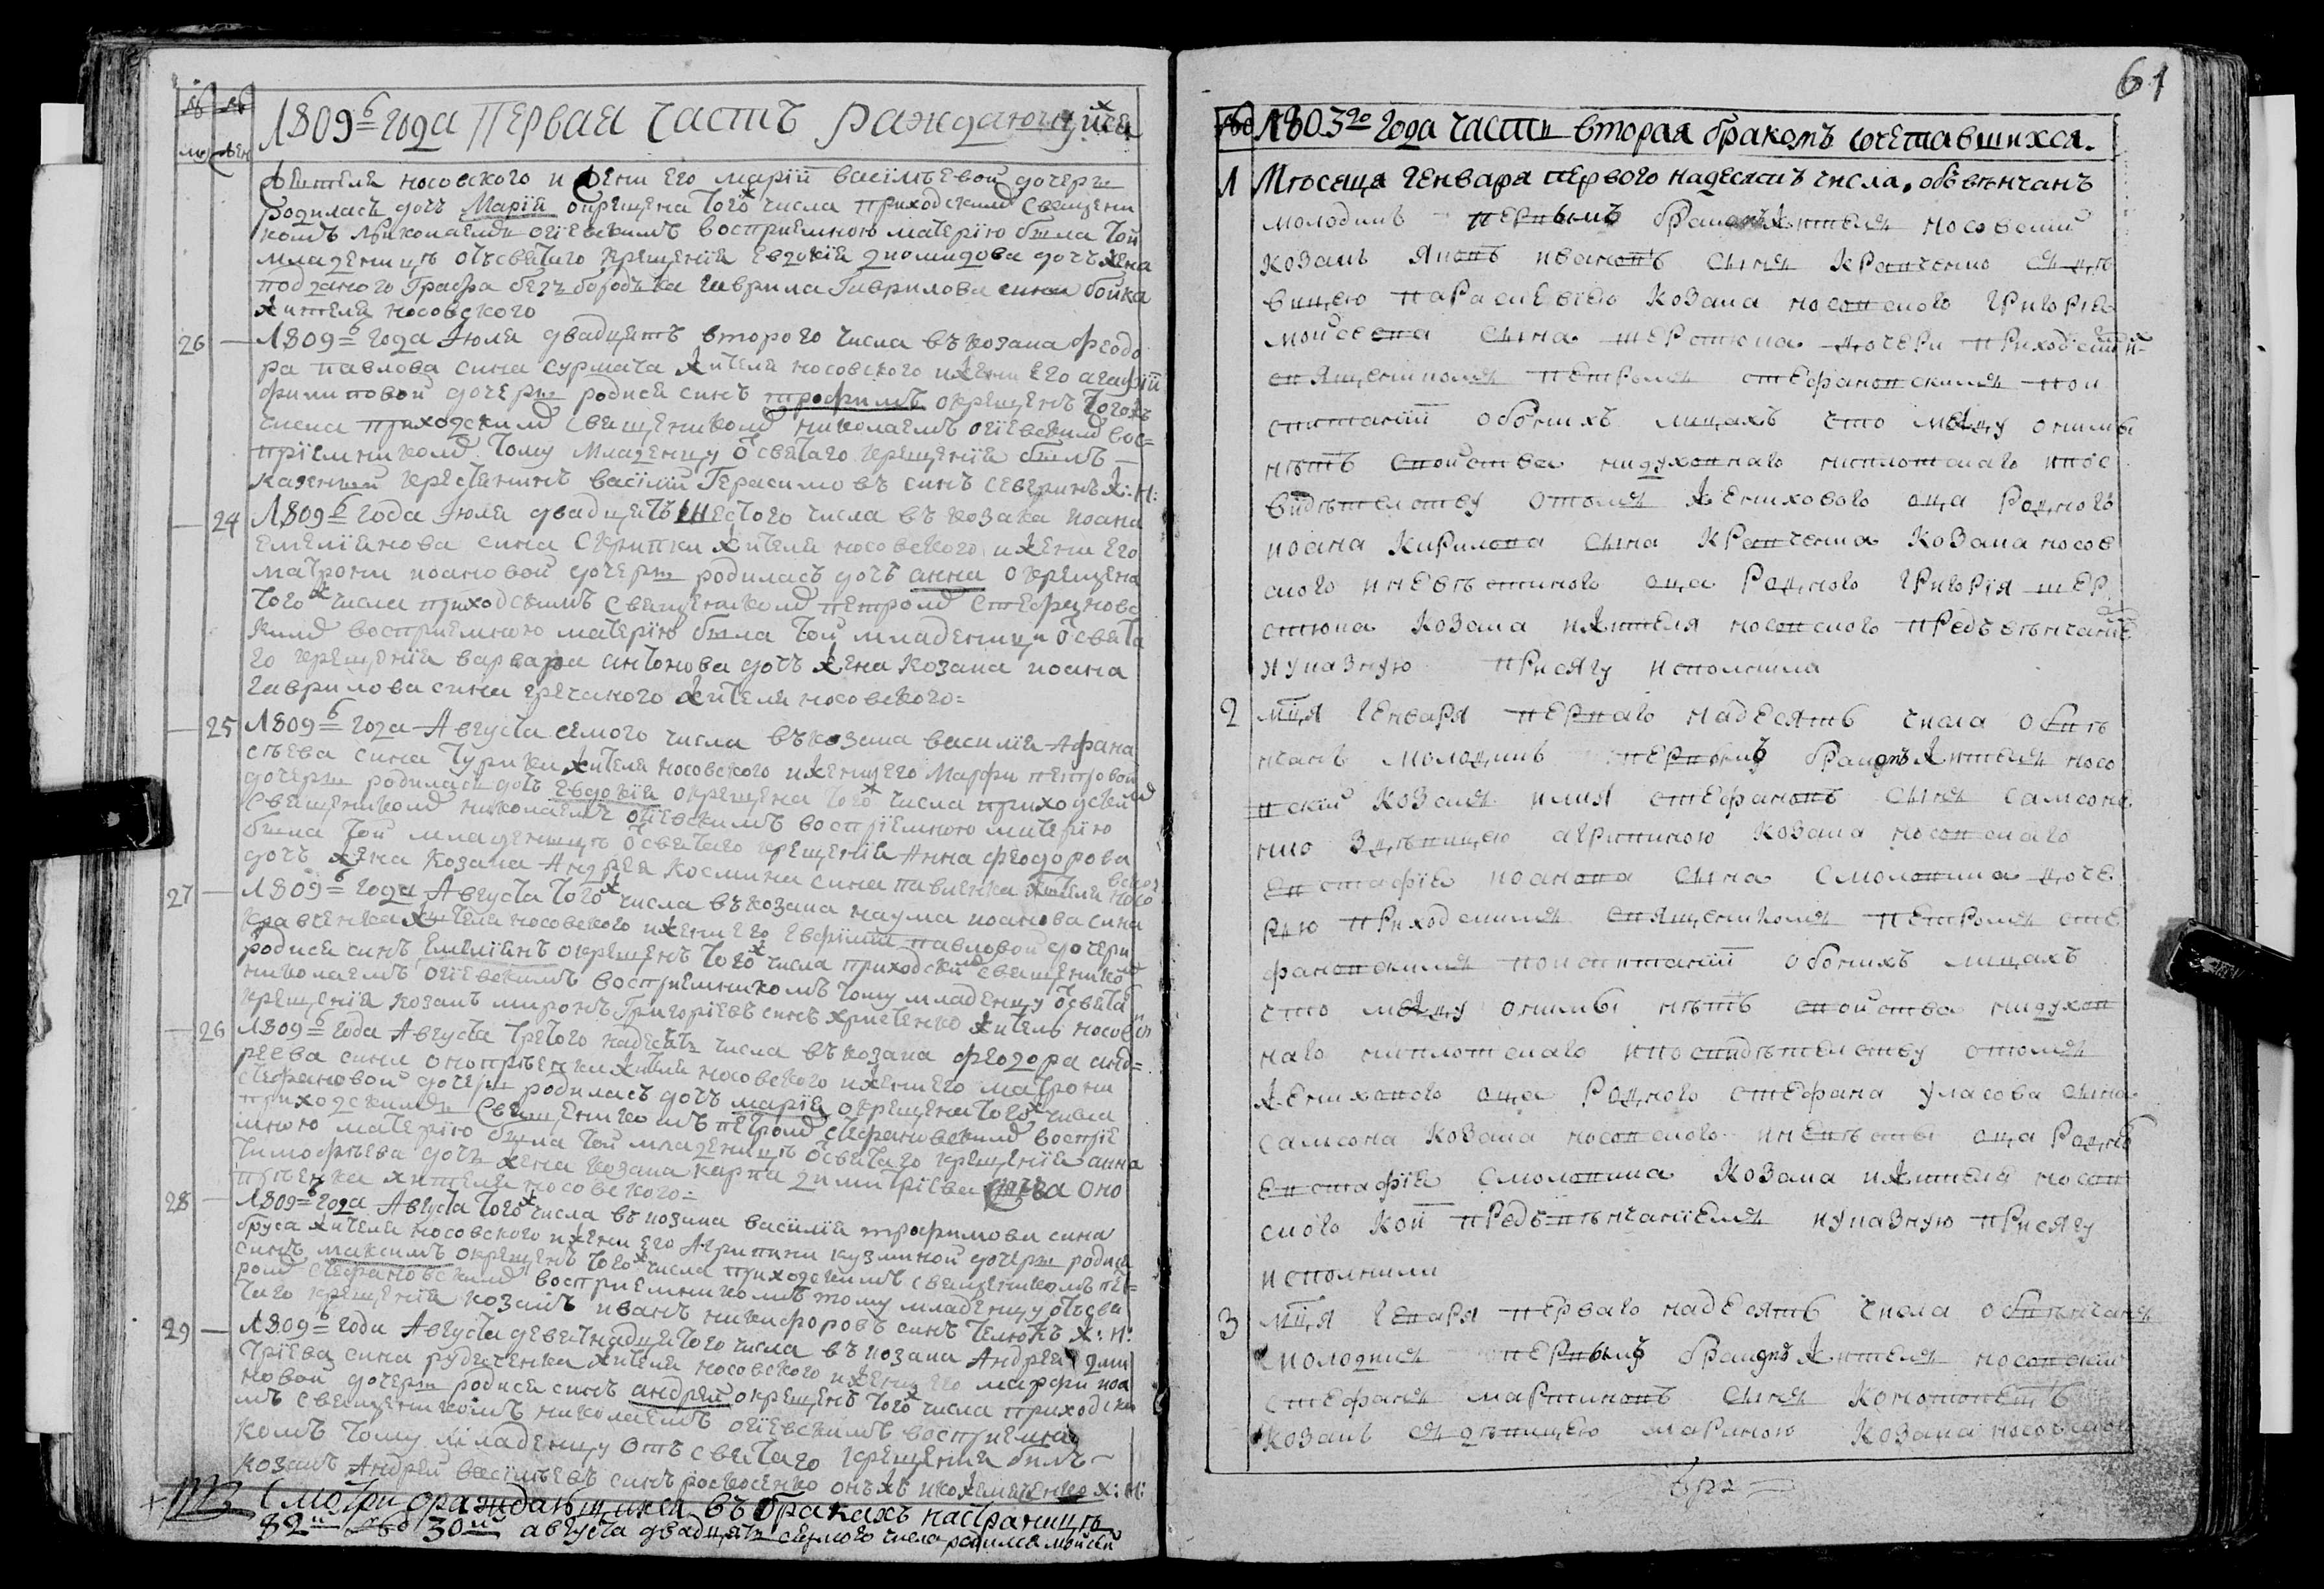 1809=б года Первая часть раждающийся
жителя носовского и жени его маріи василѣевой дочери
родилась дочь Марія окрещена того ж числа приходскимъ Священи
комъ Николаемъ огіевскимъ восприемною материю била той
младеници отъ святаго крещенія Евдокія диомидова дочъ жена
подданого Графа безъбородька гаврила Гаврилова сина бойка
жителя носовского
26 1809=б года Июля двадцять второго числа въ козака феодо
ра павлова сина сурмача жителя носовского и жени его агафіи
филиповой дочери родися синъ трофимъ окрещенъ того ж
числа приходским Священиком николаемъ огіевским вос=
пріемником тому младенцу от святаго крещенія билъ
казений крестянинъ василій Герасимовъ синъ северинъ ж: н:
24 1809б года Июля двадцять шестого числа въ козака иоана
емеліянова сина Скрипки жителя носовского и жени его
матрони иоановой дочери родилась дочъ анна окрещена
того ж числа приходскимъ Священиком петром Стефановс
ким восприемною материю била той младеници от свята
го крещенія варвара антонова дочъ жена козака иоана
гаврилова сина гречаного жителя носовского=
25 1809=б года Августа семого числа въ козака василія Афана
сѣева сина Чурики жителя носовского и жени его Марфи петровой
дочери родилась дочъ Евдокія окрещена того ж числа приходским
Священиком николаемъ огіевскимъ воспріемною материю
била той младеници от святаго крещенія Анна феодорова
дочъ жена козака Андрея Космина сина павленка жителя носовског
27 1809=б года Августа того ж числа въ козака наума иоанова сина
кравченка жителя носовского и жени его Евфіміи павловой дочери
родися синъ Емеліянъ окрещенъ того ж числа приходским священиком
николаемъ огіевскимъ восприемникомъ тому младенцу от святаг
крещенія козакъ миронъ Григоріевъ синъ христенко житель носовс
26 1809=б года Августа третого надесять числа въ козака феодора анд=
реева сина оноприенки жителя носовского и жени его матрони
стефановой дочери родилась дочъ марія окрещена того ж числа
приходским Священикомъ петром Стефановским воспріе
мною материю била той младеници от святаго крещенія анна
тимофѣева дочъ жена козака карпа димитріева сина оно
пріенка жителя носовского=
28 1809=б года Августа того ж числа въ козака василія трофимова сина
бруса жителя носовского и жени его Агрипини кузминой дочери родися
синъ максимъ окрещенъ того ж числа приходскимъ священикомъ пет=
ром стефановским восприемникомъ тому младенцу отъ свя
таго крещенія козакъ иванъ никифоровъ синъ телюкъ ж: н:
29 1809=б года Августа девятнадцятого числа въ козака Андрея дми
тріева сина рудченка жителя носовского и жени его марфи иоа
новой дочери родися синъ андрей окрещенъ того ж числа приходски
мъ священикомъ николаемъ огіевскимъ восприемни
комъ тому младенцу отъ святаго крещенія билъ
козакъ Андрей василѣевъ синъ онъ ж ж: н:
NB Смотри ораждающихся въ бракахъ на страницѣ
82й № 30й августа двадцять седмого числа родился мойсей
61
№ 1803го года части вторая бракомъ сочетавшихся.
1 Мѣсяца генваря первого надесять числа. обвѣнчанъ
молодикъ первымъ бракомъ житель носовский
козакъ яковъ ивановъ сынъ кравченко сдѣ
вицею параскевіею козака носовского григорія
мойсеева сына шерстюка дочери приходским
священикомъ петромъ стефановскимъ пои
спитаніи обоихъ лицахъ что между оними
нѣтъ свойства нидуховнаго ниплотскаго ипос
видѣтелству отомъ женихового оца родного
иоана кирилова сына кравченка козака носов
ского иневѣстиного оца родного григорія шер
стюка козака ижителя носовского предъвѣнчаніе
нуказную присягу исполнила
2 мця генваря первого надесять числа обвѣ
нчанъ молодикъ первымъ бракомъ житель носо
вский козакъ илия стефановъ сынъ самсоне
нко здѣвицею агрипиною козака носовского
евстафія иоанова сына смоловика доче
рю приходскимъ священикомъ петромъ сте
фановскимъ поиспитаніи обоихъ лицахъ
что между оними нѣтъ свойства нидухов
наго ниплотскаго ипосвидѣтелству отомъ
женихового оца родного стефана уласова сына
самсона козака носовского иневѣсти оца родног
евстафія смоловика козака ижителя носов
ского кои предъвѣнчаніемъ нуказную присягу
исполнили
3 мця генаря перваго надесять числа обвѣнчанъ
молодикъ первымъ бракомъ житель носовский
стефанъ мартиновъ сынъ коноwonетъ
козакъ сдѣвицею мариною козака носовског